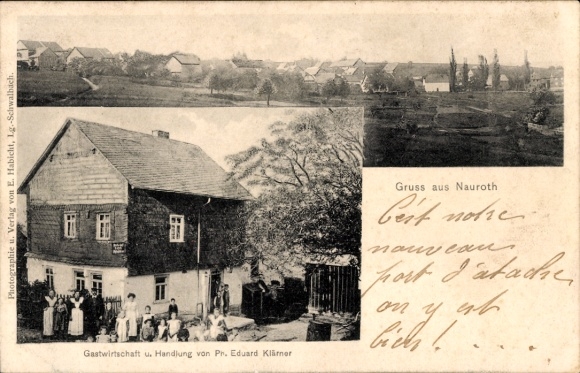 Photographie u. Verlag von E. Habicht, Lg.-Schwalbach.
Gruss aus Nauroth
C'est notre
nouveau
port d'atache
on y est
bien! ....
Gastwirtschaft u. Handlung von Ph. Eduard Klärner